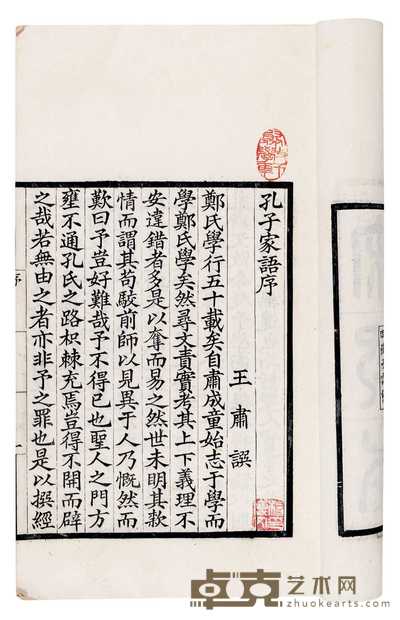 孔子家語序
王肅譔
鄭氏學行五十載矣自肅成童始志于學而
學鄭氏學矣然尋文責實考其上下義理不
安違錯者多是以奪而易之然世未明其款
情而謂其苟駮前師以見異于人乃慨然而
歎曰予豈好難哉予不得已也聖人之門方
壅不通孔氏之路枳棘充焉豈得不開而辟
之哉若無由之者亦非予之罪也是以撰經
序
一
卓克艺术网
www.zhuokearts.com